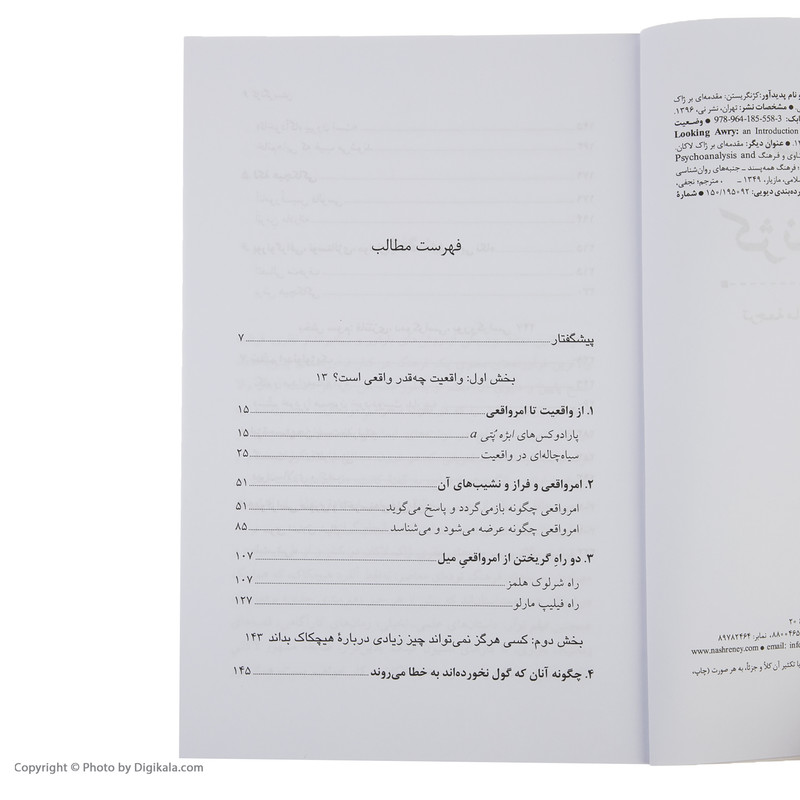 و نام پدیدآور: کژنگریستن: مقدمه‌ای بر ژاک
● مشخصات نشر: تهران، نشر نی، ۱۳۹۶.
978-964-185-558-3 ● وضعیت
Looking Awry: an Introduction
● عنوان دیگر: مقدمه‌ای بر ژاک لاکان.
و فرهنگ Psychoanalysis and
فرهنگ همه‌پسند ـ جنبه‌های روان‌شناسی
مازیار، ۱۳۴۹ ـ ، مترجم؛ نجفی،
رده‌بندی دیویی: ۱۵۰/۱۹۵۰۹۲ ● شمارهٔ
نمابر: ۸۹۷۸۲۴۶۴
www.nashreney.com ● email: info
تکثیر آن کلاً و جزئاً، به هر صورت (چاپ،
فهرست مطالب
پیشگفتار ۷
بخش اول: واقعیت چه‌قدر واقعی است؟ ۱۳
۱. از واقعیت تا امرواقعی ۱۵
پارادوکس‌های ابژه پُتی a ۱۵
سیاه‌چاله‌ای در واقعیت ۲۵
۲. امرواقعی و فراز و نشیب‌های آن ۵۱
امرواقعی چگونه بازمی‌گردد و پاسخ می‌گوید ۵۱
امرواقعی چگونه عرضه می‌شود و می‌شناسد ۸۵
۳. دو راهِ گریختن از امرواقعیِ میل ۱۰۷
راه شرلوک هلمز ۱۰۷
راه فیلیپ مارلو ۱۲۷
بخش دوم: کسی هرگز نمی‌تواند چیز زیادی دربارهٔ هیچکاک بداند ۱۴۳
۴. چگونه آنان که گول نخورده‌اند به خطا می‌روند ۱۴۵
Copyright © Photo by Digikala.com